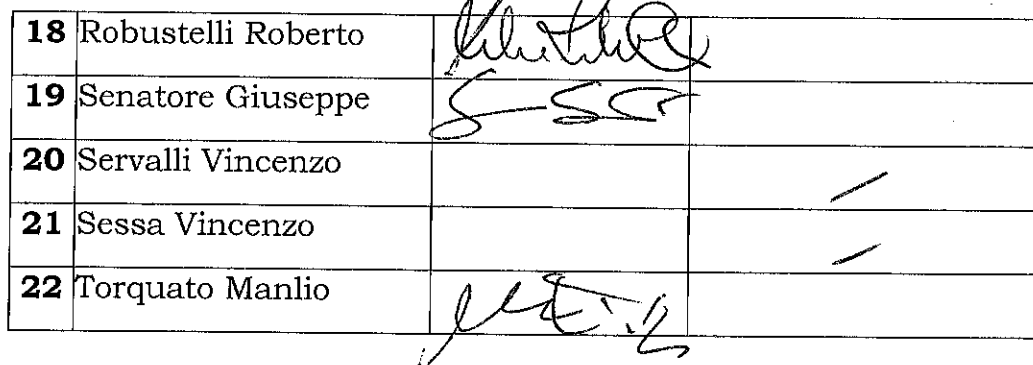 18 Robustelli Roberto
19 Senatore Giuseppe
20 Servalli Vincenzo
21 Sessa Vincenzo
22 Torquato Manlio